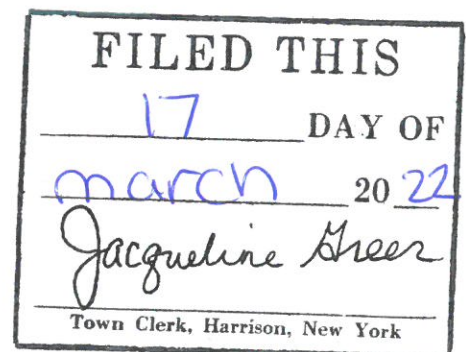 FILED THIS
17 DAY OF
march 20 22
Jacqueline Greer
Town Clerk, Harrison, New York